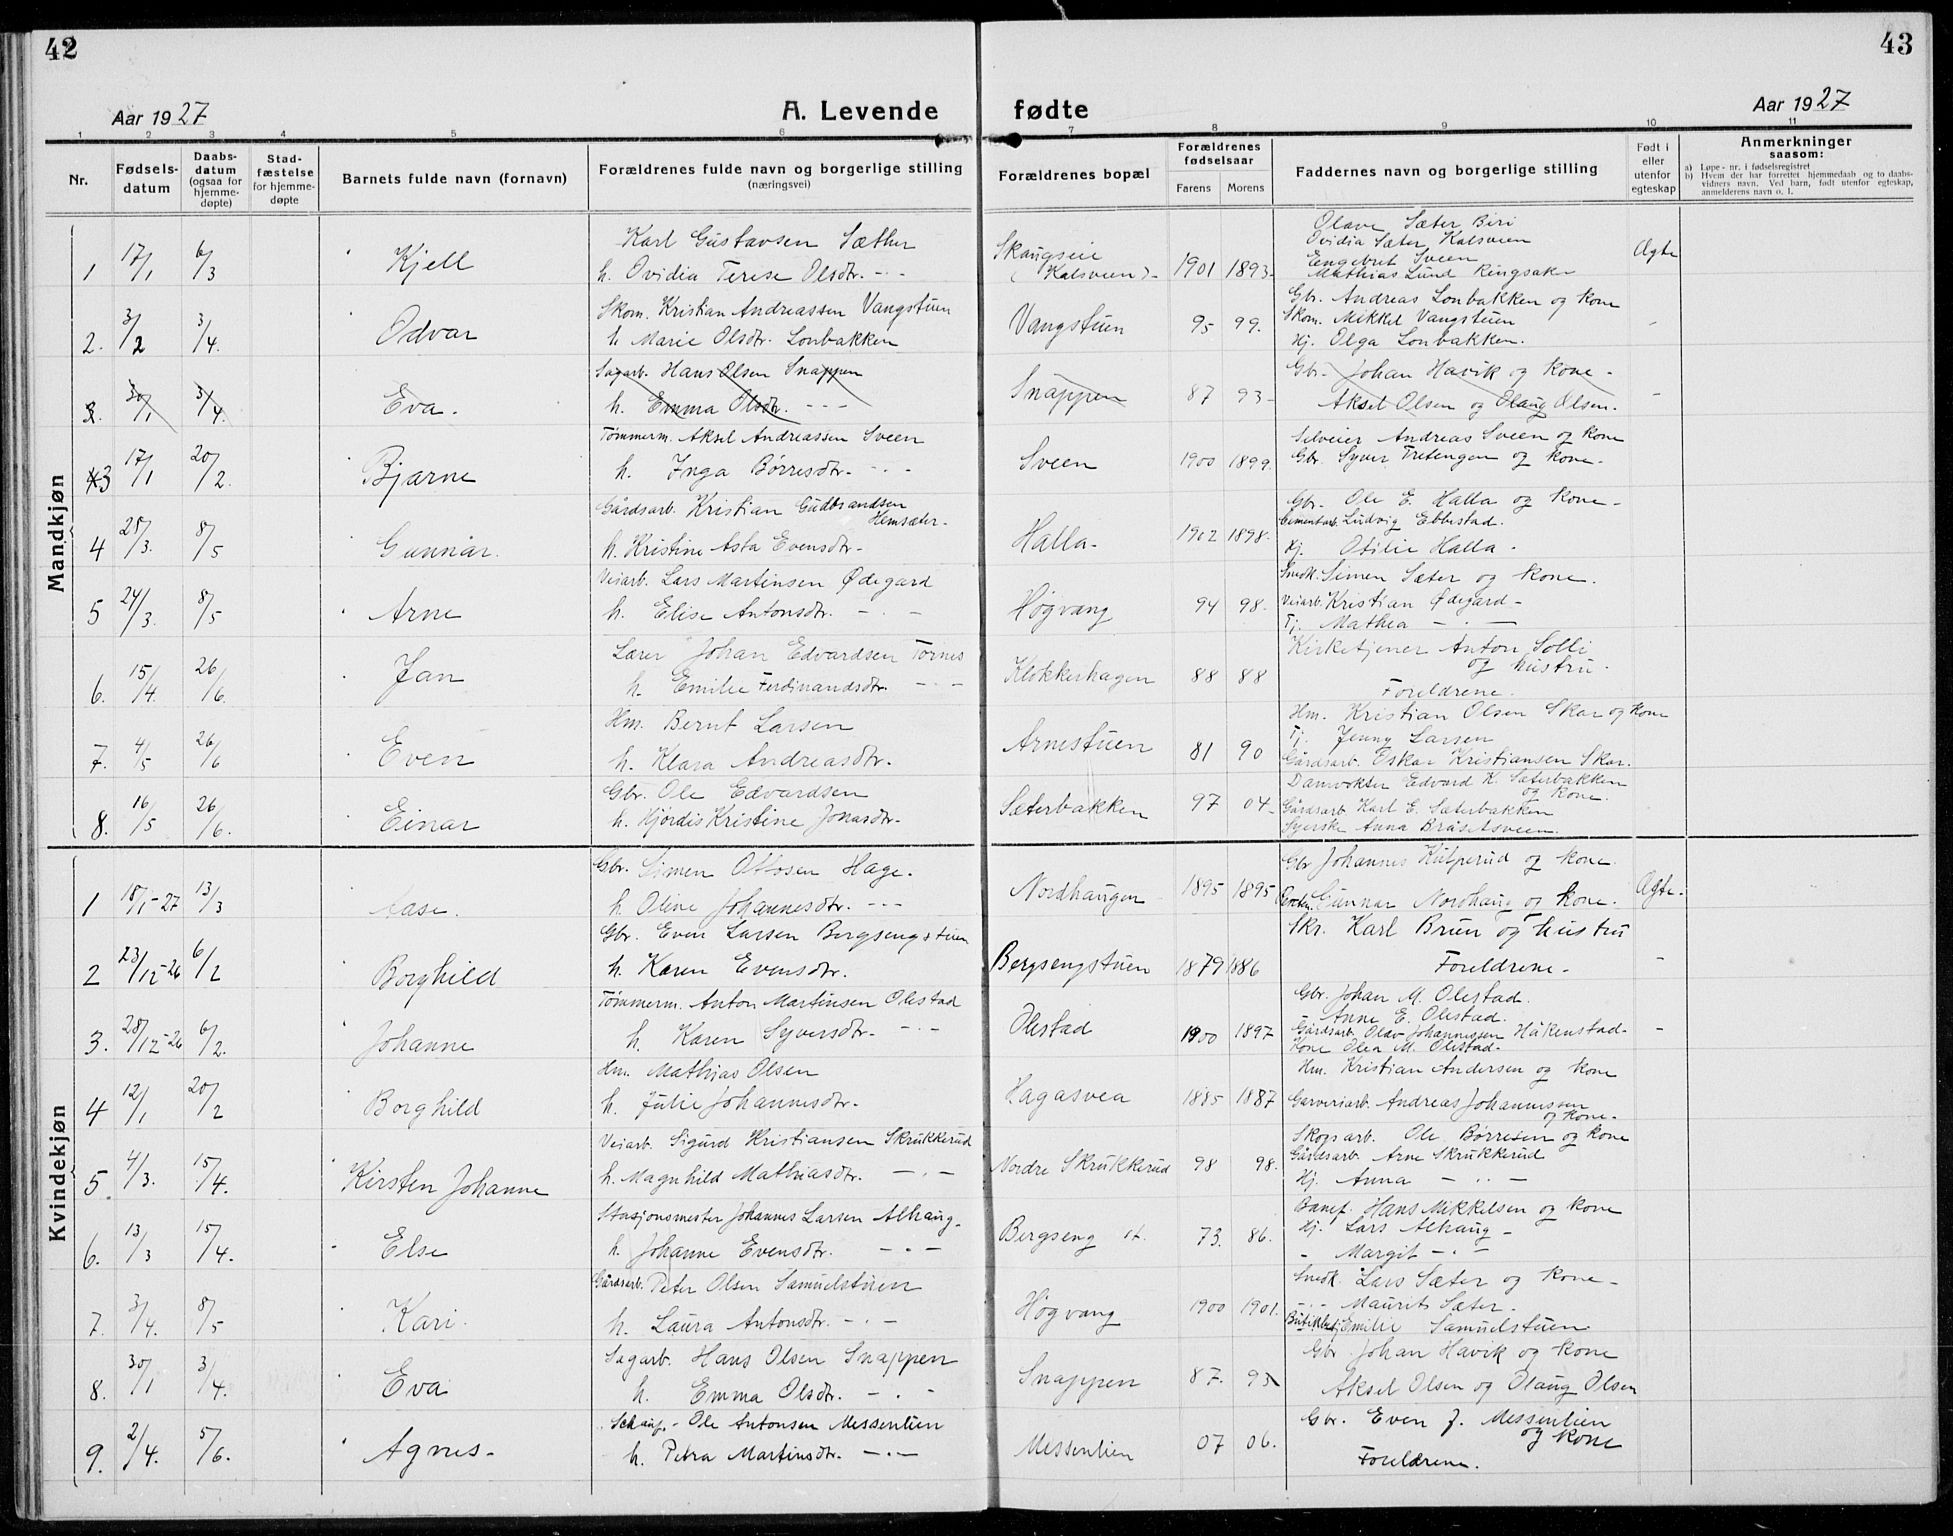 42
43
Aar 1927
A. Levende fødte
Aar 1927
1 2 3 4 5 6 7 8 9 10 11
Nr.
Fødsels-datum
Daabs-datum (ogsaa for hjemme-døpte)
Stad-fæstelse for hjemme-døpte
Barnets fulde navn (fornavn)
Forældrenes fulde navn og borgerlige stilling (næringsvei)
Forældrenes bopæl
Forældrenes fødselsaar
Farens Morens
Faddernes navn og borgerlige stilling
Født i eller utenfor egteskap
Anmerkninger saasom:
a) Løpe-nr. i fødselsregistret
b) Hvem der har forrettet hjemmedaab og to daabs-vidners navn. Ved barn, født utenfor egteskap, anmelderens navn o. l.
Mandkjøn
Karl Gustavsen Sæther
1 17/1 6/3 Kjell
h. Ovidia Terese Olsdtr. -·-
Skaugseie (Kalsveen)- 1901 1893-
Olave Sæter Biri
Ovidia Sæter Kalsveen
Engebret Sveen
Mathias Lund Ringsaker
Ægte
Skom. Kristian Andreassen Vangstuen
2. 3/2 3/4. Odvar
h. Marie Olsdtr. Lonbakken
Vangstuen 95 99.
Gbr. Andreas Lonbakken og kone
Skom. Mikkel Vangstuen
Hj. Olga Lonbakken.
Sagarb. Hans Olsen Snappen
3. 30/1 3/4. Eva.
h. Emma Olsdtr. -·-
Snappen 87 93-
Gbr. Johan Havik og kone-
Aksel Olsen og Olaug Olsen.
Tømmerm. Aksel Andreassen Sveen
3 17/1 20/2. Bjarne
h. Inga Børresdtr. -·-
Sveen 1900 1899.
Andreas Sveen og kone
Gbr. Syver Tretengen og kone-
Gårdsarb. Kristian Gudbrandsen Hemsæter-
4 25/3. 8/5 Gunnar.
h. Kristine Asta Evensdtr-
Halla- 1902 1898.
Gbr. Ole E. Halla og kone-
Cementarb. Ludvig Ebbestad.
Hj. Otilie Halla.
Veiarb. Lars Martinsen Ødegard
5 24/3. 8/5 Arne
h. Elise Antonsdtr. -·-
Høgvang 94 98-
Snedk. Simen Sæter og kone.
Veiarb. Kristian Ødegard-
Tj. Mathea -·-
Lærer Johan Edvardsen Tornes
6. 15/4. 26/6. Jan
h. Emilie Ferdinandsdtr. -·-
Klokkerhagen 88 88
Kirketjener Anton Solli og hustru.
Foreldrene.
Hm. Bernt Larsen
7. 4/5 26/6 Even
h. Klara Andreasdtr.
Arnestuen 81 90
Hm. Kristian Olsen Skar og kone
Tj. Jenny Larsen
Gårdsarb. Oskar Kristiansen Skar.
Gbr. Ole Edvardsen
8. 16/5 26/6. Einar
h. Hjørdis Kristine Jonasdtr.
Sæterbakken 97 04-
Damvokter Edvard K. Sæterbakken og kone.
Gårdsarb. Karl E. Sæterbakken
Syerske Anna Bråsetsveen.
Kvindekjøn
Gbr. Simen Ottosen Hage.
1 18/1-27 13/3 Aase.
h. Oline Johannesdtr. -·-
Nordhaugen 1895 1895
Gbr. Johannes Kulperud og kone.
Gunnar Nordhaug og kone.
Ægte.
Gbr. Even Larsen Bergsengstuen
2 23/12-26 6/2 Borghild
h. Karen Evensdtr.
Bergsengstuen 1879 1886
Skr. Karl Bruun og hustru
Foreldrene-
Tømmerm. Anton Martinsen Olestad
3. 28/12-26 6/2. Johanne
h. Karen Syversdtr. -·-
Olestad 1900 1897
Gbr. Johan M. Olestad.
- Anne E. Olestad.
Gårdsarb. Olav Johannessen Håkenstad-
Kone Olea M. Olestad-
Hm. Mathias Olsen
4 12/1 20/2 Borghild
h. Julie Johannesdtr.
Hagasvea 1885 1887
Hm. Kristian Andersen og kone
Garveriarb. Andreas Johannessen og kone-
Veiarb. Sigurd Kristiansen Skrukkerud
5. 4/3. 15/4. Kirsten Johanne
h. Magnhild Mathiasdtr. -·-
Nordre Skrukkerud 98 98.
Skogsarb. Ole Børresen og kone
Gårdsarb. Arne Skrukkerud
Hj. Anna -··-
Stasjonsmester Johannes Larsen Alhaug.
6. 13/3 15/4. Else
h. Johanne Evensdtr. -·-
Bergseng st. 73. 86.
Banef. Hans Mikkelsen og kone
Hj. Lars Alhaug-
- Margit -·-
Gårdsarb. Peter Olsen Samuelstuen
7. 3/4. 8/5 Kari.
h. Laura Antonsdtr. -·-
Høgvang 1900 1901.
Snedk. Lars Sæter og kone-
-·- Maurits Sæter.
Emilie Samuelstuen.
Sagarb. Hans Olsen Snappen
8. 30/1 3/4. Eva
h. Emma Olsdtr. -·-
Snappen 87. 93
Gbr. Johan Havik og kone
Aksel Olsen og Olaug Olsen
Ole Antonsen Messenlien
9. 2/4. 5/6. Agnes-
h. Petra Martinsdtr. -·-
Messenlien 07 06.
Gbr. Even J. Messenlien og kone
Foreldrene.